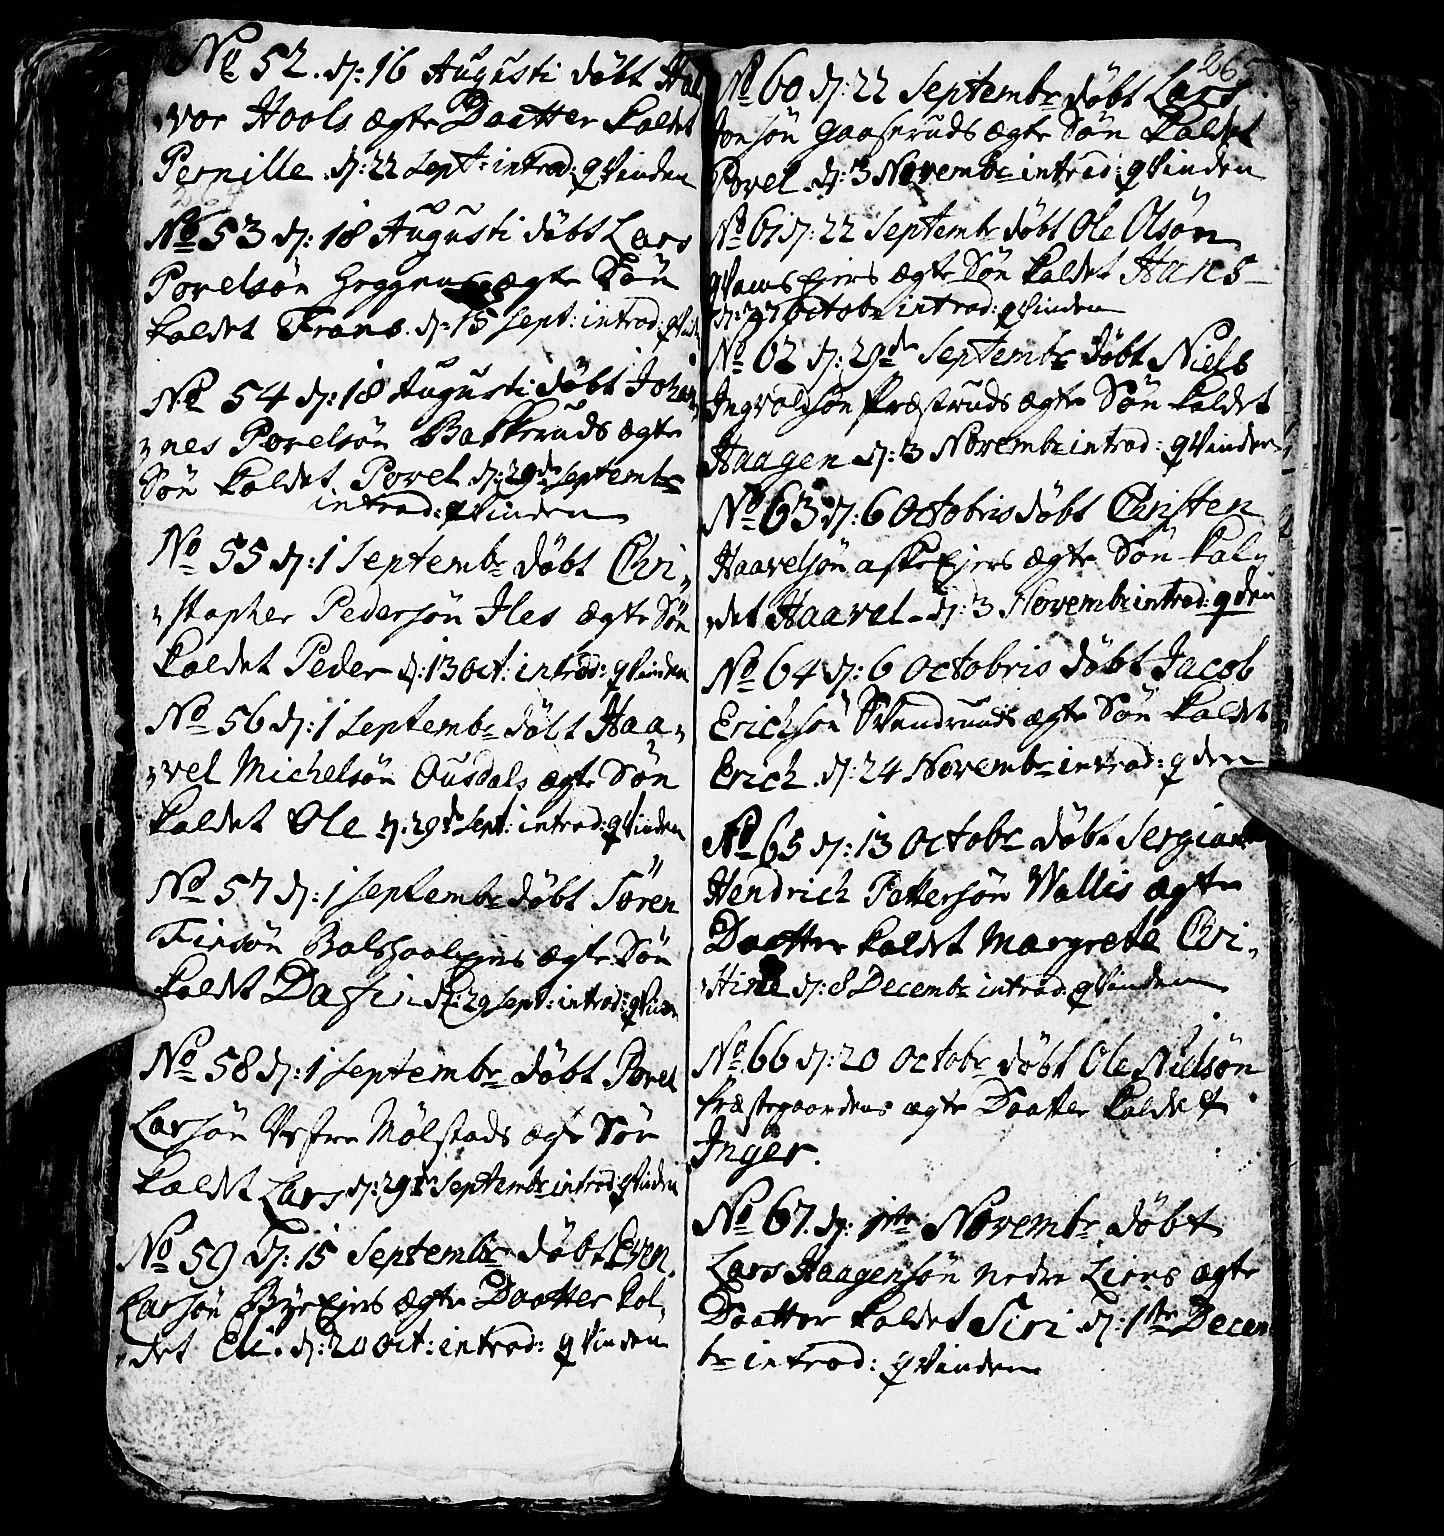 No 52. d: 16 Augusti döbt Hal
„vor Hools ægte Daatter kaldet
Pernille. d: 22 Sept: introd: qvinden
No 53 d: 18 Augusti döbt Lars
Povelsön ægte Sön
kaldet Frans. d: 15 Sept: introd:
No 54 d: 18 Augusti döbt Johan„
„nes Povelsön Bakkeruds ægte
Sön kaldet Povel d: 29de Septembr
introd: qvinden
No 55 d: 1 Septembr döbt Chri„
„stopher Pedersön Iles ægte Sön
kaldet Peder d: 13 Oct: introd: qvinden
No 56 d: 1 Septembr döbt Haa„
„vel Michelsön Ousdals ægte Sön
kaldet Ole d: 29de Sept: introd: qvinden
No 57 d: 1 Septembr döbt Sören
ægte Sön
kaldet d: 29 Sept: introd:
No 58 d: 1 Septembr döbt Povel
Larsön Vestre Mölstads ægte Sön
kaldet Lars d: 29de Septembr introd: qvinden
No 59 d: 15 Septembr döbt Even
Larsön Byeejers ægte Daatter kal„
„det Eli. d: 20 Oct: introd: qvinden
265
No 60 d: 22 Septembr döbt Lars
Jonsön Gaaseruds ægte Sön kaldet
Povel. d: 3 Novembr introd: qvinden
No 61 d: 22 Septembr döbt Ole Olsön
ægte Sön kaldet Hans
d: 27 Octobr introd: qvinden
No 62 d: 29de Septembr döbt Niels
Ingvoldsön Præsteruds ægte Sön kaldet
Haagen d: 3 Novembr introd: qvinden
No 63 d: 6 Octobris döbt Christen
Haavelsön Askeejers ægte Sön kal„
„det Haavel. d: 3 Novembr introd: qden
No 64 d: 6 Octobris döbt Jacob
Erichsön Svendruds ægte Sön kaldet
Erich. d: 24 Novembr introd: qden
No 65 d: 13 Octobr döbt Sergiant
Hendrich Pettersön Wallis ægte
Daatter kaldet Margrete Chri„
„stine d: 8 Decembr introd: qvinden
No 66 d: 20 Octobr döbt Ole Nielsön
Præstegaardens ægte Daatter kaldet
Inger.
No 67. d: 1ste Novembr döbt
Lars Haagensön nedre Liens ægte
Daatter kaldet Siri d: 1ste Decem
br introd: qvinden